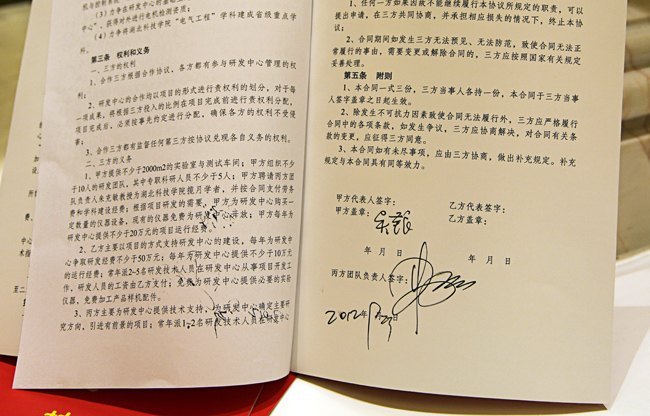 机与控制系统
（3）力争在研发中心的基
中心"、获得对外进行电机检测资质；
（4）力争将湖北科技学院"电气工程"学科建成省级重点学
科。
第三条 权利和义务
一、三方的权利
1、合作三方根据合作协议，各方都有参与研发中心管理的权
利；
2、研发中心的合作均以项目的形式进行责权利的划分，对于每
一项成果，将根据三方投入的比例在项目完成前进行责权利分配，
项目完成后，必须按事先约定进行分配，确保各方的权利不受侵
害；
3、合作三方都有监督任何第三方按协议兑现各自义务的权利。
二、三方的义务
1、甲方提供不少于2000m2的实验室与测试车间；甲方组织不少
于10人的研发团队，其中专职科研人员不少于5人；甲方聘请丙方团
队负责人朱克敏教授为湖北科技学院揽月学者，并按合同支付劳务
费和学科建设经费；根据项目研发的需要，甲方为研发中心购买一
定数量的仪器设备，现有的仪器免费为研发中心开放；甲方每年为
研发中心提供不少于20万元的项目运行经费。
2、乙方主要以项目的方式支持研发中心的建设，每年为研发中
心争取研发经费不少于50万元；每年为研发中心提供不少于10万元
的运行经费；常年派2-5名研发技术人员在研发中心从事项目开发工
作，研发人员的工资由乙方支付；免费为研发中心提供必要的实验
仪器，免费加工产品样机配件。
3、丙方主要为研发中心提供技术支持，为研发中心确定主要研
究方向，引进有前景的项目；常年派1-2名研发技术人员在研发中心
1、任何一方如果因故不能继续履行本协议所规定的职责，可以
提出申请，在三方共同协商，并承担相应损失的情况下，终止本协
议；
2、合同期间如发生三方无法预见、无法防范，致使合同无法正
常履行的事由，需要变更或解除合同的，三方应按照国家有关规定
妥善处理。
第五条 附则
1、本合同一式三份，三方当事人各持一份，本合同于三方当事
人签字盖章之日起生效。
2、除发生不可抗力因素致使合同无法履行外，三方应严格履行
合同中的各项条款，如发生争议，三方应协商解决，对合同有关条
款的变更，应征得三方同意。
3、本合同如有未尽事项，应由三方协商，做出补充规定。补充
规定与本合同具有同等效力。
甲方代表人签字： 乙方代表签字：
甲方盖章： 乙方盖章：
年 月 日 年 月 日
丙方团队负责人签字：
2012年 月 日